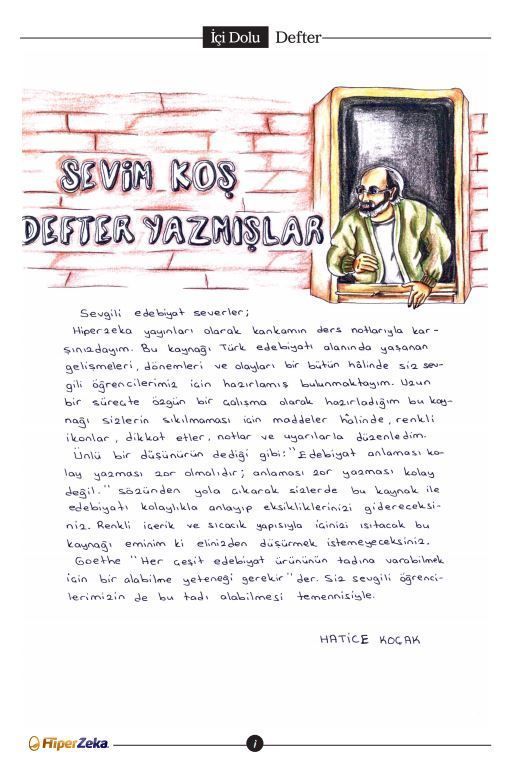 İçi Dolu Defter
SEVİM KOŞ
DEFTER YAZMIŞLAR
Sevgili edebiyat severler;
Hiperzeka yayınları olarak kankamın ders notlarıyla kar-
şınızdayım. Bu kaynağı Türk edebiyatı alanında yaşanan
gelişmeleri, dönemleri ve olayları bir bütün hâlinde siz sev-
gili öğrencilerimiz için hazırlamış bulunmaktayım. Uzun
bir süreçte özgün bir çalışma olarak hazırladığım bu kay-
nağı sizlerin sıkılmaması için maddeler hâlinde, renkli
ikonlar, dikkat etler, notlar ve uyarılarla düzenledim.
Ünlü bir düşünürün dediği gibi: "Edebiyat anlaması ko-
lay yazması zor olmalıdır; anlaması zor yazması kolay
değil." sözünden yola çıkarak sizlerde bu kaynak ile
edebiyatı kolaylıkla anlayıp eksikliklerinizi gidereceksi-
niz. Renkli içerik ve sıcacık yapısıyla içinizi ısıtacak bu
kaynağı eminim ki elinizden düşürmek istemeyeceksiniz.
Goethe "Her çeşit edebiyat ürününün tadına varabilmek
için bir alabilme yeteneği gerekir" der. Siz sevgili öğrenci-
lerimizin de bu tadı alabilmesi temennisiyle.
HATİCE KOÇAK
HiperZeka
i